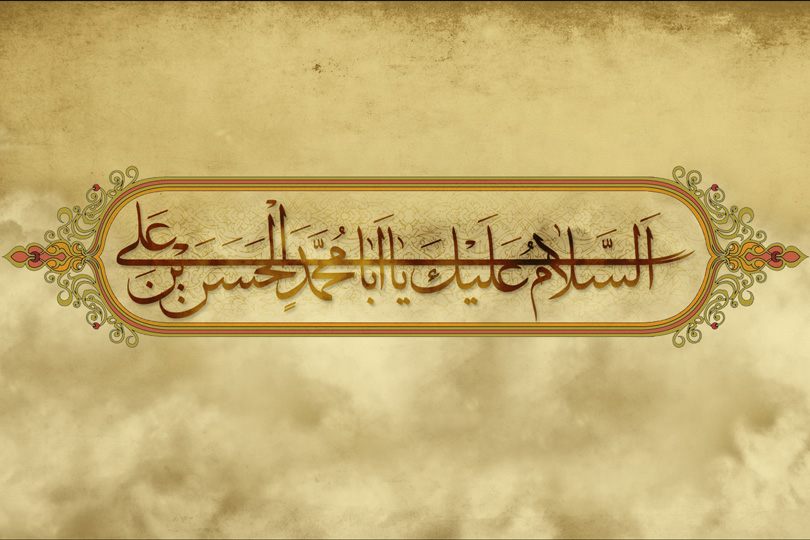 اَلسَّلامُ عَلَيْكَ يا اَبا مُحَمَّدٍ الْحَسَنَ بْنَ عَلي